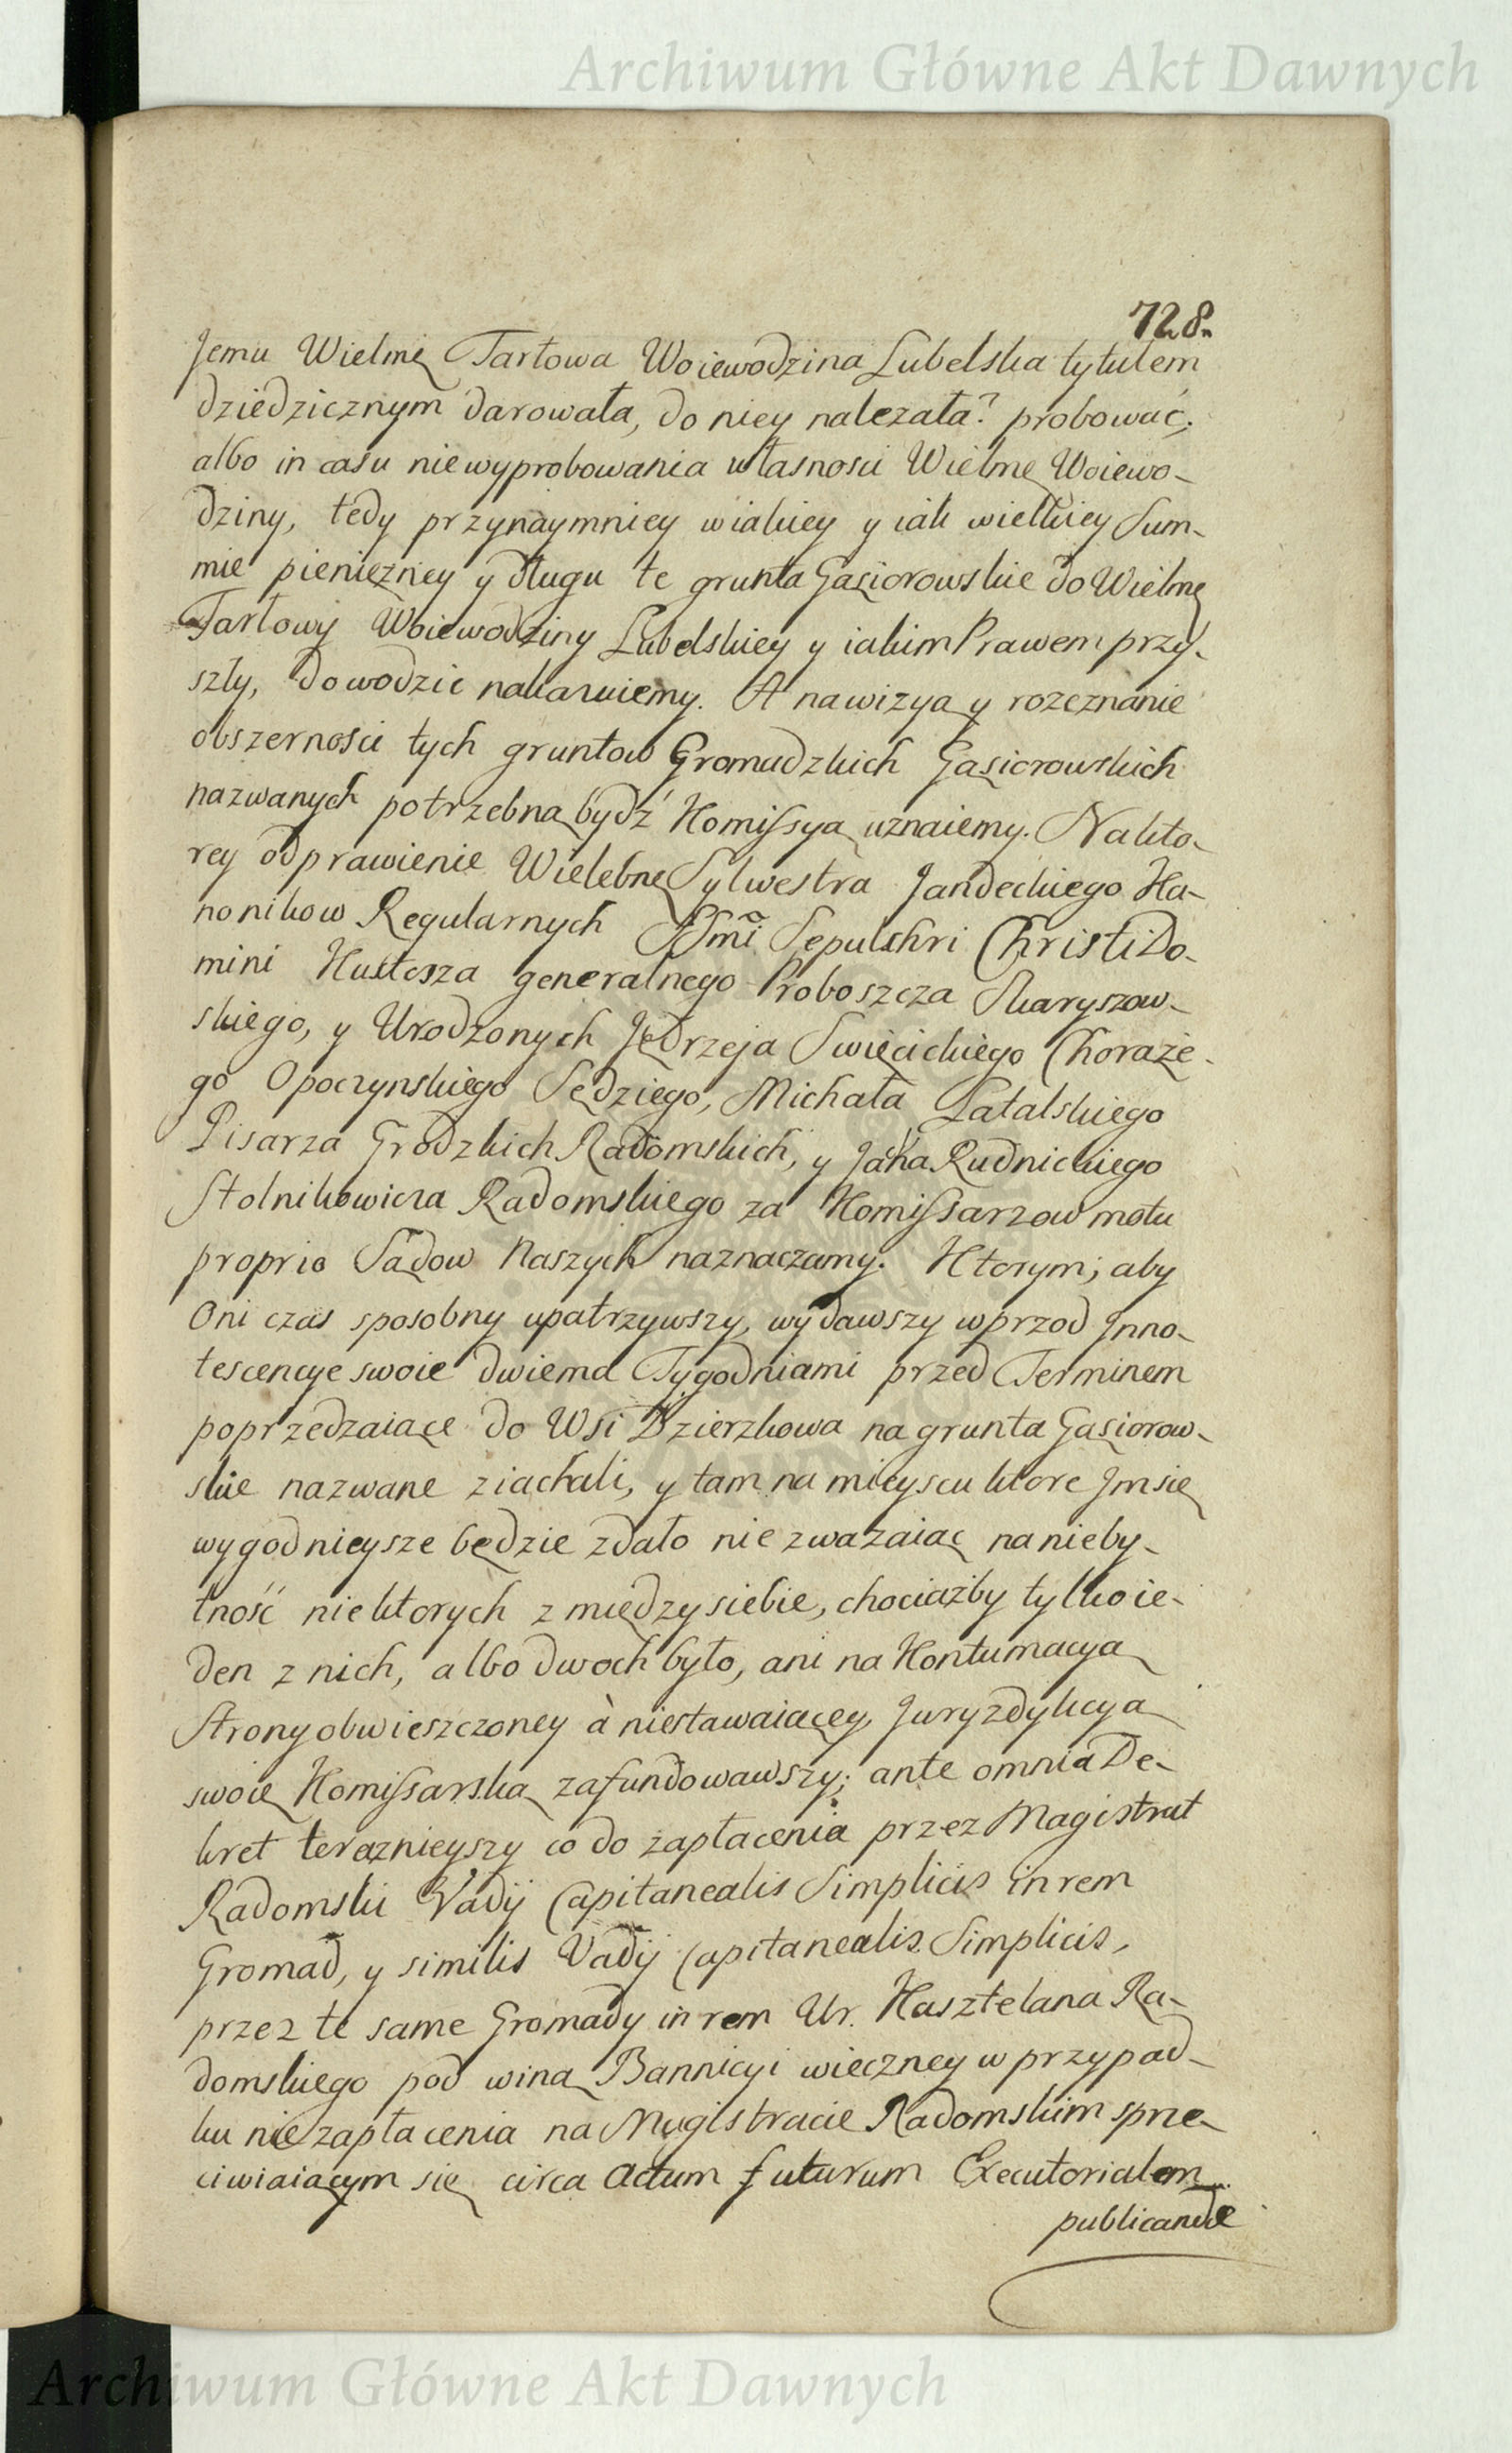 Archiwum Główne Akt Dawnych
728.
Jemu Wielmę Tarłowa Woiewodzina Lubelska tytułem
dziedzicznym darowała, do niey należała? probować,
albo in casu niewyprobowania własnosci Wielmę Woiewo-
dziny, tedy przynaymniey wiakiey y iak wielkiey Sum-
mie pieniężney y długu te grunta Gąsiorowskie do Wielmę
Tarłowy Woiewodziny Lubelskiey y iakim Prawem przy-
szły, dowodzic nakazuiemy. A na wizyą y rozeznanie
obszernosci tych gruntow Gromadzkich Gąsiorowskich
nazwanych potrzebną bydź Komissyą uznaiemy. Na kto-
rey odprawienie Wielebnę Sylwestra Jandeckiego Ka-
nonikow Regularnych SSmi Sepulchri Christi Do-
mini Kustosza generalnego Proboszcza Skaryszow-
skiego, y Urodzonych Jędrzeja Swięcickiego Chorąże-
go Opoczynskiego Sędziego, Michała Łatalskiego
Pisarza Grodzkich Radomskich, y Jana Rudnickiego
Stolnikowicza Radomskiego za Komissarzow motu
proprio Sądow Naszych naznaczamy. Ktorym; aby
Oni czas sposobny upatrzywszy, wydawszy wprzod Inno-
tescencye swoie dwiema Tygodniami przed Terminem
poprzedzaiące do Wsi Dzierzkowa na grunta Gąsiorow-
skie nazwane ziachali, y tam na mieyscu ktore Jm się
wygodnieysze będzie zdało nie zwazaiąc na nieby-
tność niektorych z między siebie, chociażby tylko ie-
den z nich, albo dwoch było, ani na Kontumacyą
Strony obwieszczoney à niestawaiącey, Juryzdykcyą
swoię Komissarską zafundowawszy; ante omnia De-
kret teraznieyszy co do zapłacenia przez Magistrat
Radomski Vadij Capitanealis Simplicis in rem
Gromad, y similis Vadij Capitanealis Simplicis,
przez te same Gromady in rem Ur. Kasztelana Ra-
domskiego pod winą Bannicyi wieczney w przypad-
ku nie zapłacenia na Magistracie Radomskim sprze-
ciwiaiącym się circa actum futurum Executorialem
publicandæ
Archiwum Główne Akt Dawnych